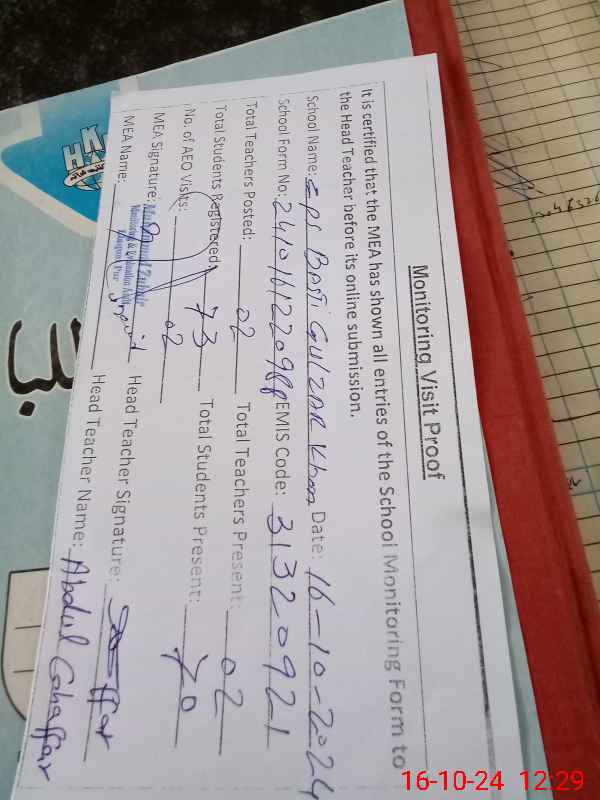 Monitoring Visit Proof
It is certified that the MEA has shown all entries of the School Monitoring Form to
the Head Teacher before its online submission.
School Name: GPS BASTI GULZAR Khan Date: 16-10-2024
School Form No: EMIS Code: 31320921
Total Teachers Posted: 02 Total Teachers Present: 02
Total Students Registered: 73 Total Students Present: 70
No. of AEO Visits: 02
MEA Signature: Head Teacher Signature:
MEA Name: Head Teacher Name: Abdul Ghaffar
Muhammad Zubair
Monitoring & Evaluation Asstt.
Pur
16-10-24 12:29